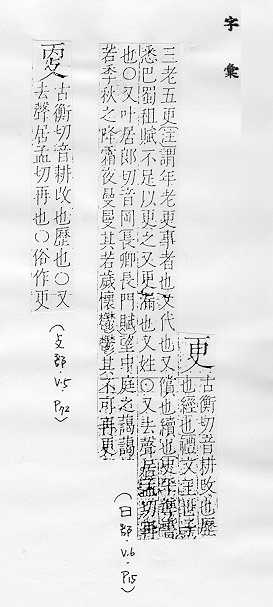 字彙
更 古衡切音耕改也歷
也經也禮文王世子
三老五更註謂年老更事者也又代也又償也續也史平準書
悉巴蜀租賦不足以更之又更滿也又姓○又去聲居孟切再
也○又叶居郎切音岡長卿長門賦望中庭之藹藹
若季秋之降霜夜曼曼其若歲懷鬱鬱其不可再更
(日部·V.6·P15)
㪅 古衡切音耕改也歷也○又
去聲居孟切再也○俗作更
(攴部·V.5 P72)